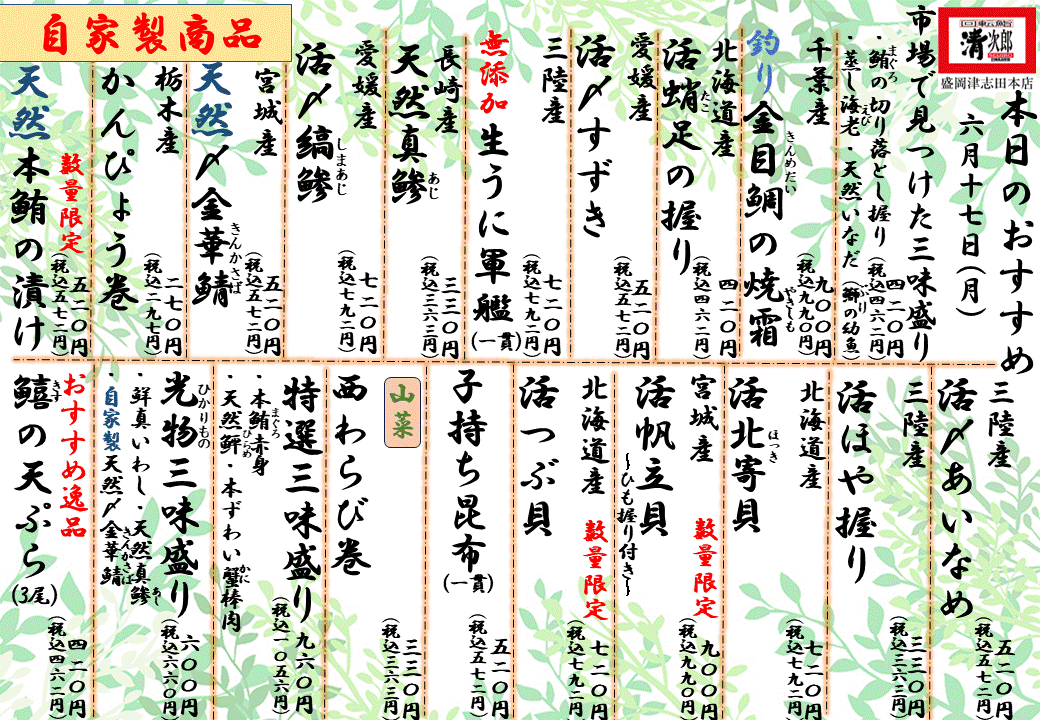 回転鮨
清次郎
盛岡津志田本店
本日のおすすめ
六月十七日(月)
市場で見つけた三味盛り
・鮪の切り落とし握り
まぐろ
・蒸し海老・天然いなだ(鰤の幼魚)
えび
ぶり
四二〇円
(税込四六二円)
千葉産
釣り金目鯛の焼霜
きんめだい
やきしも
九〇〇円
(税込九九〇円)
北海道産
活蛸足の握り
たこ
四二〇円
(税込四六二円)
愛媛産
活〆すずき
五二〇円
(税込五七二円)
三陸産
無添加生うに軍艦(一貫)
七二〇円
(税込七九二円)
長崎産
天然真鯵
あじ
三三〇円
(税込三六三円)
愛媛産
活〆縞鯵
しまあじ
七二〇円
(税込七九二円)
自家製商品
宮城産
天然〆金華鯖
きんかさば
五二〇円
(税込五七二円)
栃木産
かんぴょう巻
二七〇円
(税込二九七円)
数量限定
天然本鮪の漬け
五二〇円
(税込五七二円)
三陸産
活〆あいなめ
五二〇円
(税込五七二円)
三陸産
活ほや握り
三三〇円
(税込三六三円)
北海道産
活北寄貝
ほっき
七二〇円
(税込七九二円)
宮城産
数量限定
活帆立貝
~ひも握り付き~
九〇〇円
(税込九九〇円)
北海道産
数量限定
活つぶ貝
七二〇円
(税込七九二円)
子持ち昆布(一貫)
五二〇円
(税込五七二円)
山菜
西わらび巻
三三〇円
(税込三六三円)
特選三味盛り
・本鮪赤身
まぐろ
・天然鮃・本ずわい蟹棒肉
ひらめ
かに
九六〇円
(税込一〇五六円)
光物三味盛り
ひかりもの
・鮮真いわし・天然真鯵
あじ
・自家製天然〆金華鯖
きんかさば
六〇〇円
(税込六六〇円)
おすすめ逸品
鱚の天ぷら(3尾)
きす
四二〇円
(税込四六二円)